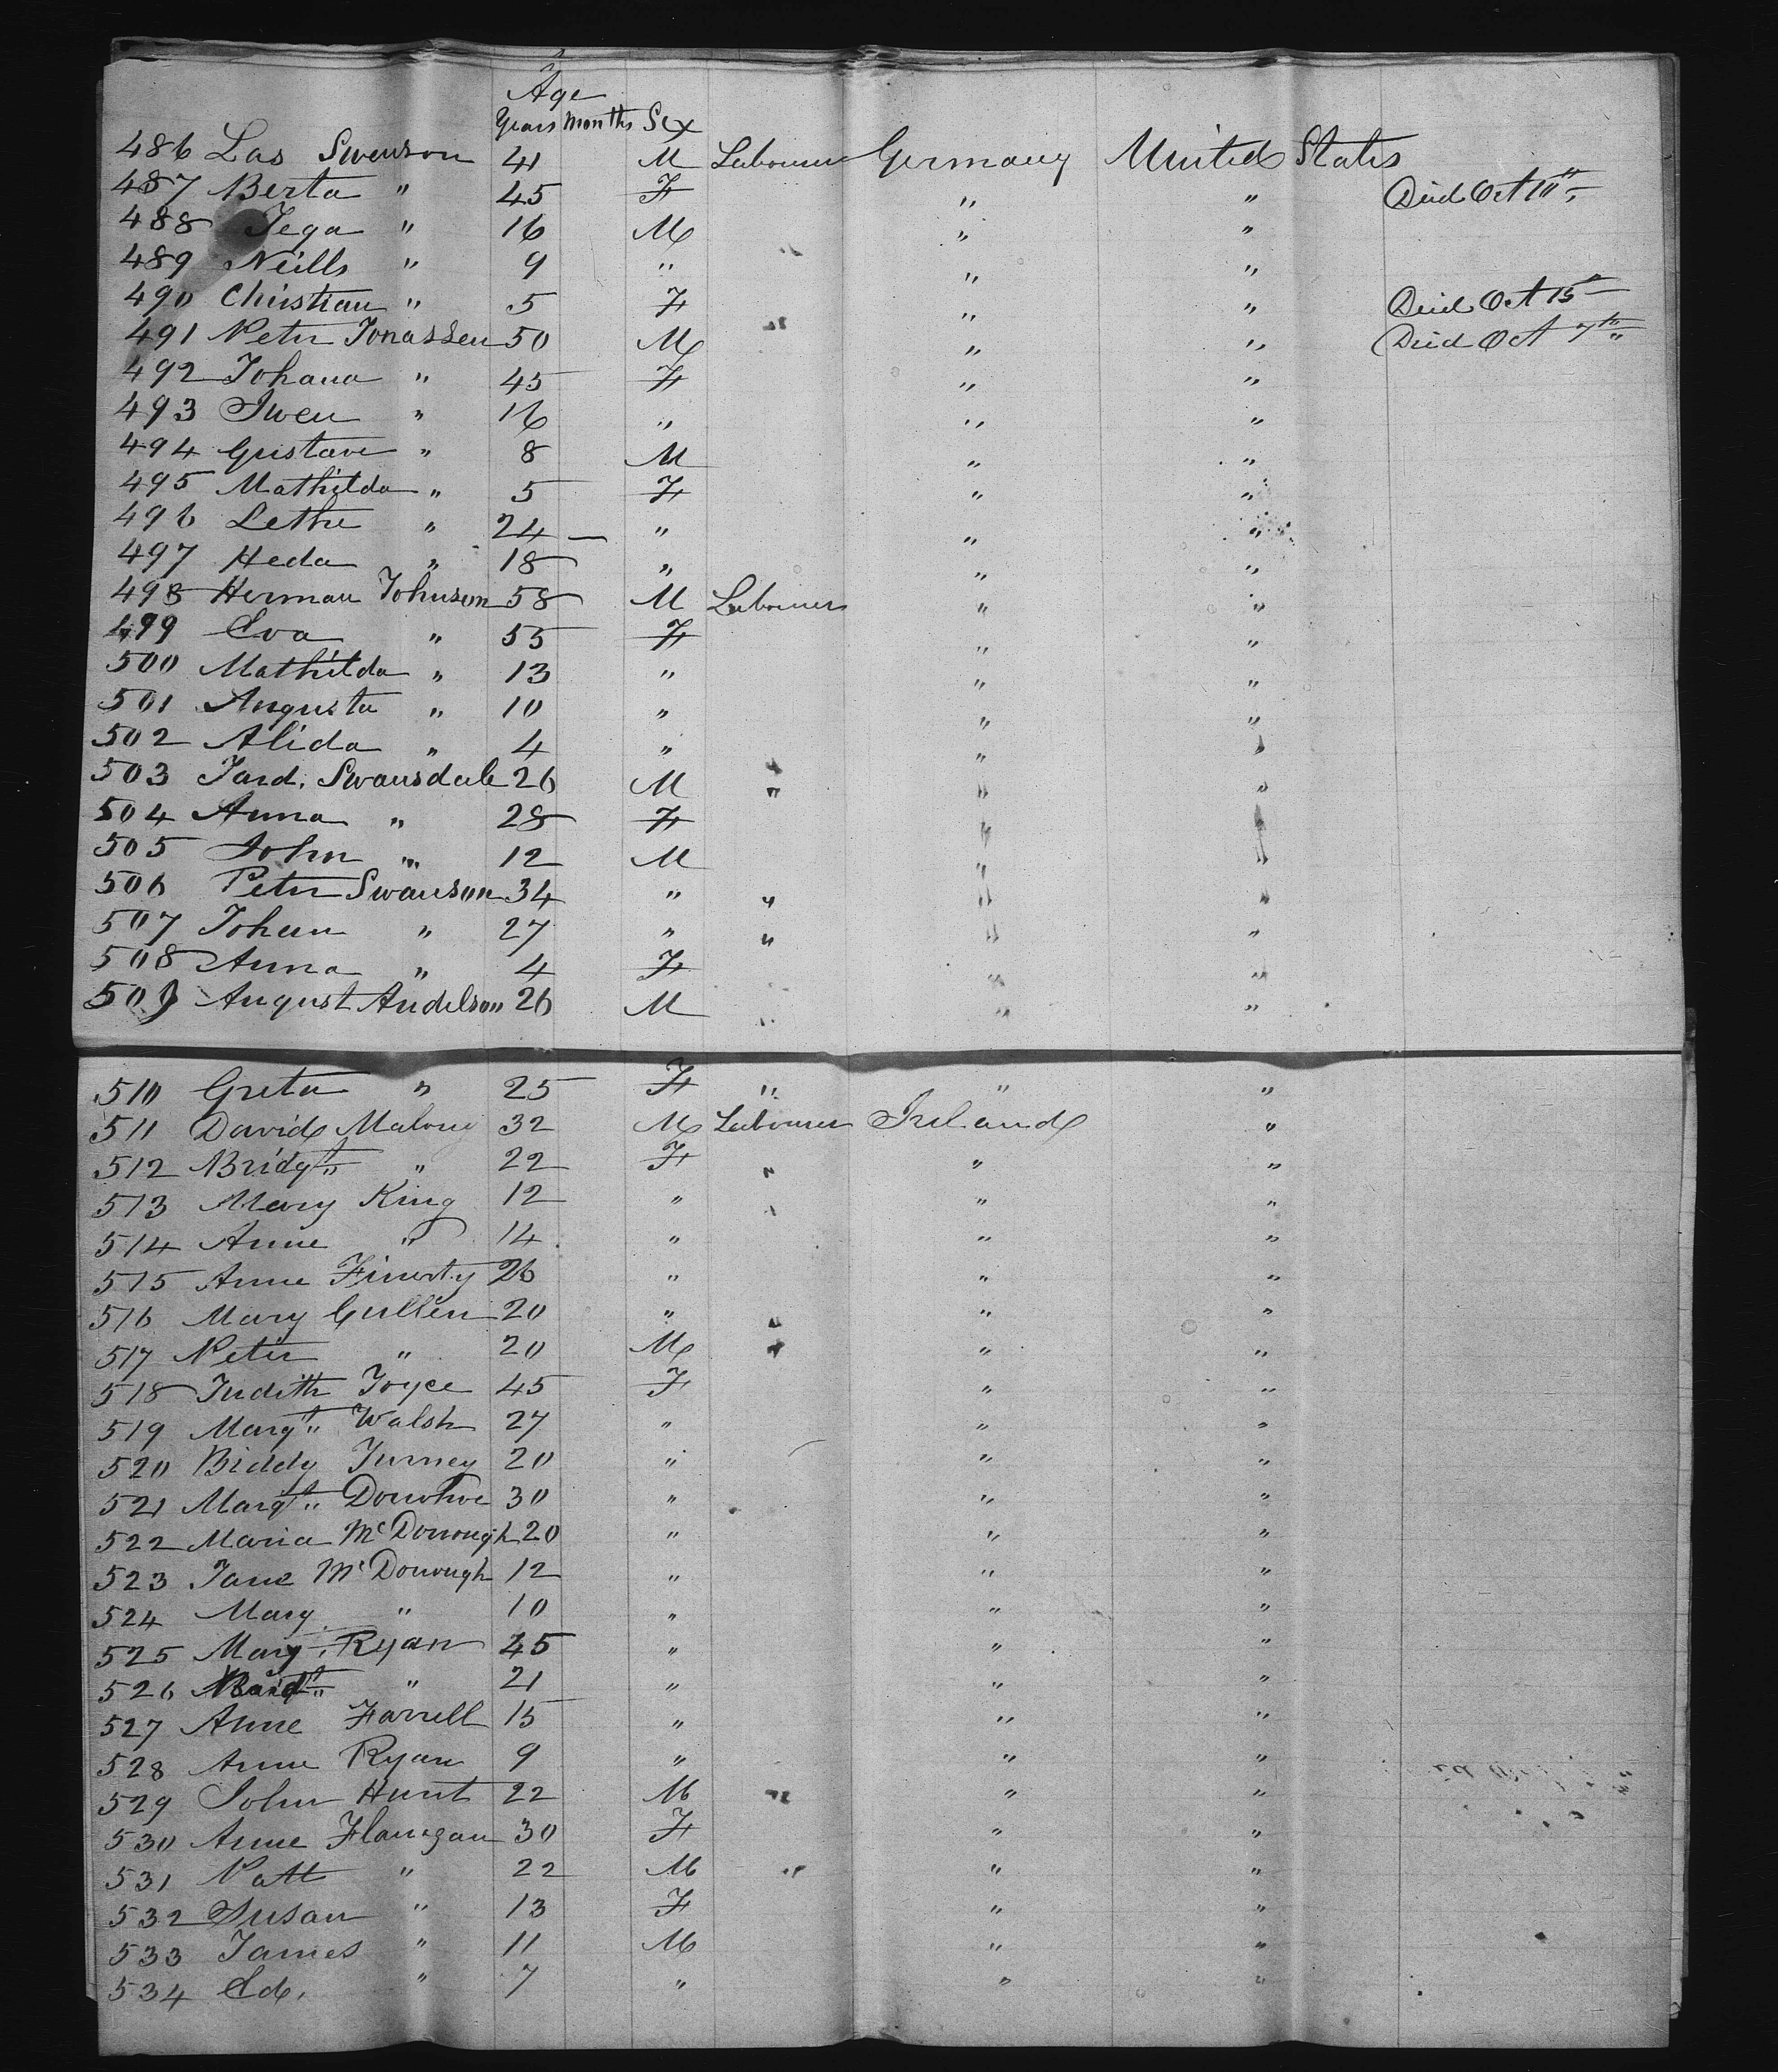 Age
Years Months Sex
486 Las Swenson 41 M Labourer Germany United States
487 Berta " 45 F " " Died Oct 10th
488 Jega " 16 M " "
489 Neills " 9 " " "
490 Christian " 5 F " " Died Oct 15th
491 Peter Jonassen 50 M " " " Died Oct 7th "
492 Johana " 45 F " "
493 Swen " 16 " " "
494 Gustave " 8 M " "
495 Mathilda " 5 F " "
496 Lethe " 24 — " " "
497 Heda " 18 " " "
498 Herman Johnson 58 M Labourer " "
499 Eva " 55 F " "
500 Mathilda " 13 " " "
501 Augusta " 10 " " "
502 Alida " 4 " " "
503 Jard. Swansdale 26 M " " "
504 Anna " 28 F " "
505 John " 12 M " "
506 Peter Swanson 34 " " " "
507 Johan " 27 " " " "
508 Anna " 4 F " "
509 August Andelson 26 M " " "
510 Greta " 25 F " " "
511 David Malony 32 M Labourer Ireland "
512 Bridgt " 22 F " " "
513 Mary King 12 " " "
514 Anne " 14 " " "
515 Anne Finerty 26 " " "
516 Mary Cullen 20 " " " "
517 Peter " 20 M " " "
518 Judith Joyce 45 F " "
519 Margt " Walsh 27 " " "
520 Biddy Turney 20 " " "
521 Margt " Donohoe 30 " " "
522 Maria McDonough 20 " " "
523 Jane McDonough 12 " " "
524 Mary " 10 " " "
525 Mary Ryan 45 " " "
526 " 21 " " "
527 Anne Farrell 15 " " "
528 Anne Ryan 9 " " "
529 John Hunt 22 M " " "
530 Anne Flanegan 30 F " "
531 Patt " 22 M " " "
532 Susan " 13 F " "
533 James " 11 M " "
534 Ed. " 7 " " "